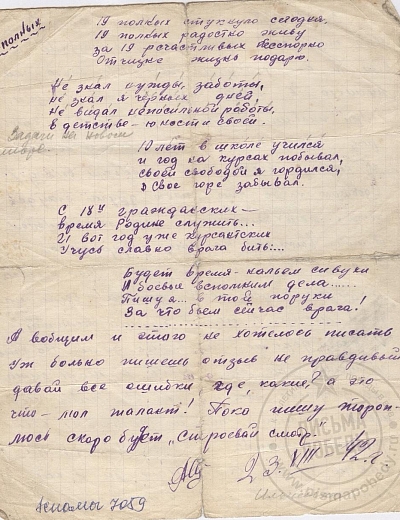 полных
19 полных стукнуло сегодня,
19 полных радостно живу
за 19 счастливых бесспорно
Отчизне жизнь подарю.
Не знал нужды, заботы,
не знал я чёрных дней,
Не видал непосильной работы,
в детстве-юности своей.
10 лет в школе учился
и год на курсах побывал,
своей свободой я гордился,
и свое горе забывал.
С 18и гражданских—
время Родине служить...
И вот год уже курсантских
Учусь славно врага бить...
Будет время-нальем
И боевые вспомним дела......
Пишу я.. в том поруки
За что бьем сейчас врага!
А вобщим и этого не хотелось писать
уж больно пишешь отзыв не правдивый
давай все ошибки где, какие? а это
что-мол талант! Пока пишу тороп-
люсь скоро будет "Строевой смотр.
23. VIII 42 г.
7059
ПИСЬМА ПОБЕДЫ